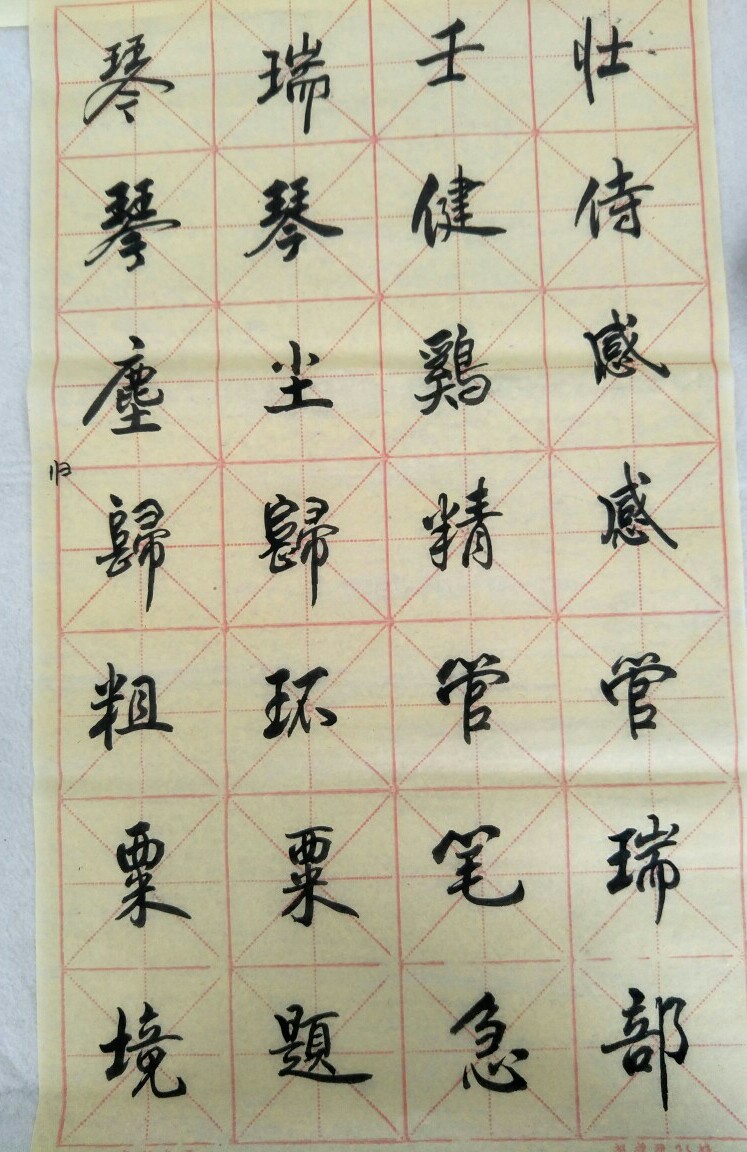 壮侍感感管瑞部
壬健鷄精管笔急
瑞琴尘歸环粟題
琴琴塵歸粗粟境
归